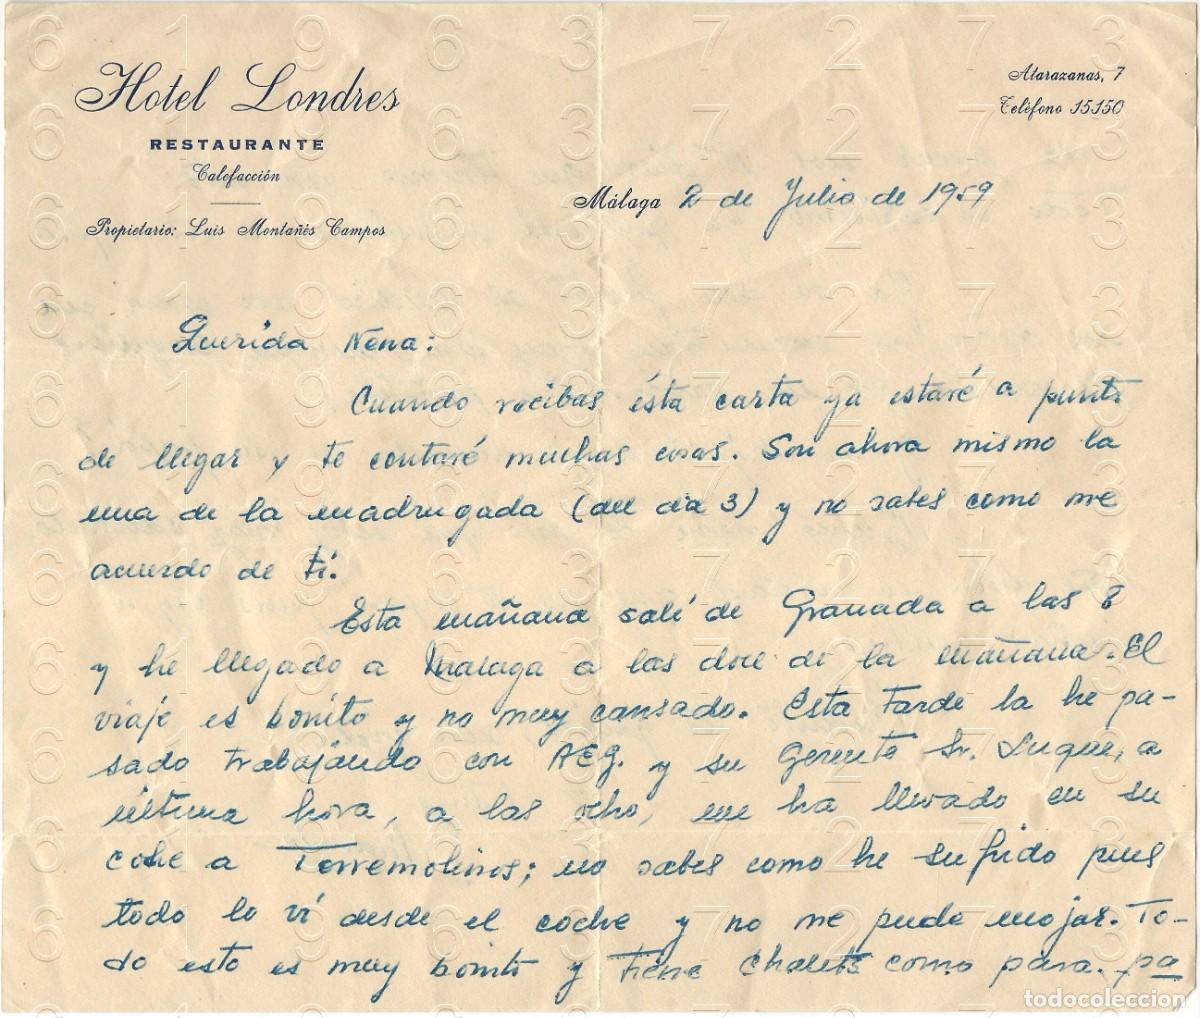 Hotel Londres
RESTAURANTE
Calefacción
Propietario: Luis Montañés Campos
Atarazanas, 7
Teléfono 15150
Málaga 2 de Julio de 1959
Querida Nena:
Cuando recibas ésta carta ya estaré a punto
de llegar y te contaré muchas cosas. Son ahora mismo la
una de la madrugada (del día 3) y no sabes como me
acuerdo de tí.
Esta mañana salí de Granada a las 8
y he llegado a Malaga a las doce de la mañana. El
viaje es bonito y no muy cansado. Esta tarde la he pa-
sado trabajando con AEG. y su Gerente Sr. Luque, a
última hora, a las ocho, me ha llevado en su
coche a Torremolinos; no sabes como he sufrido pues
todo lo ví desde el coche y no me pude mojar. To-
do esto es muy bonito y tiene chalets como para pa
todocoleccion